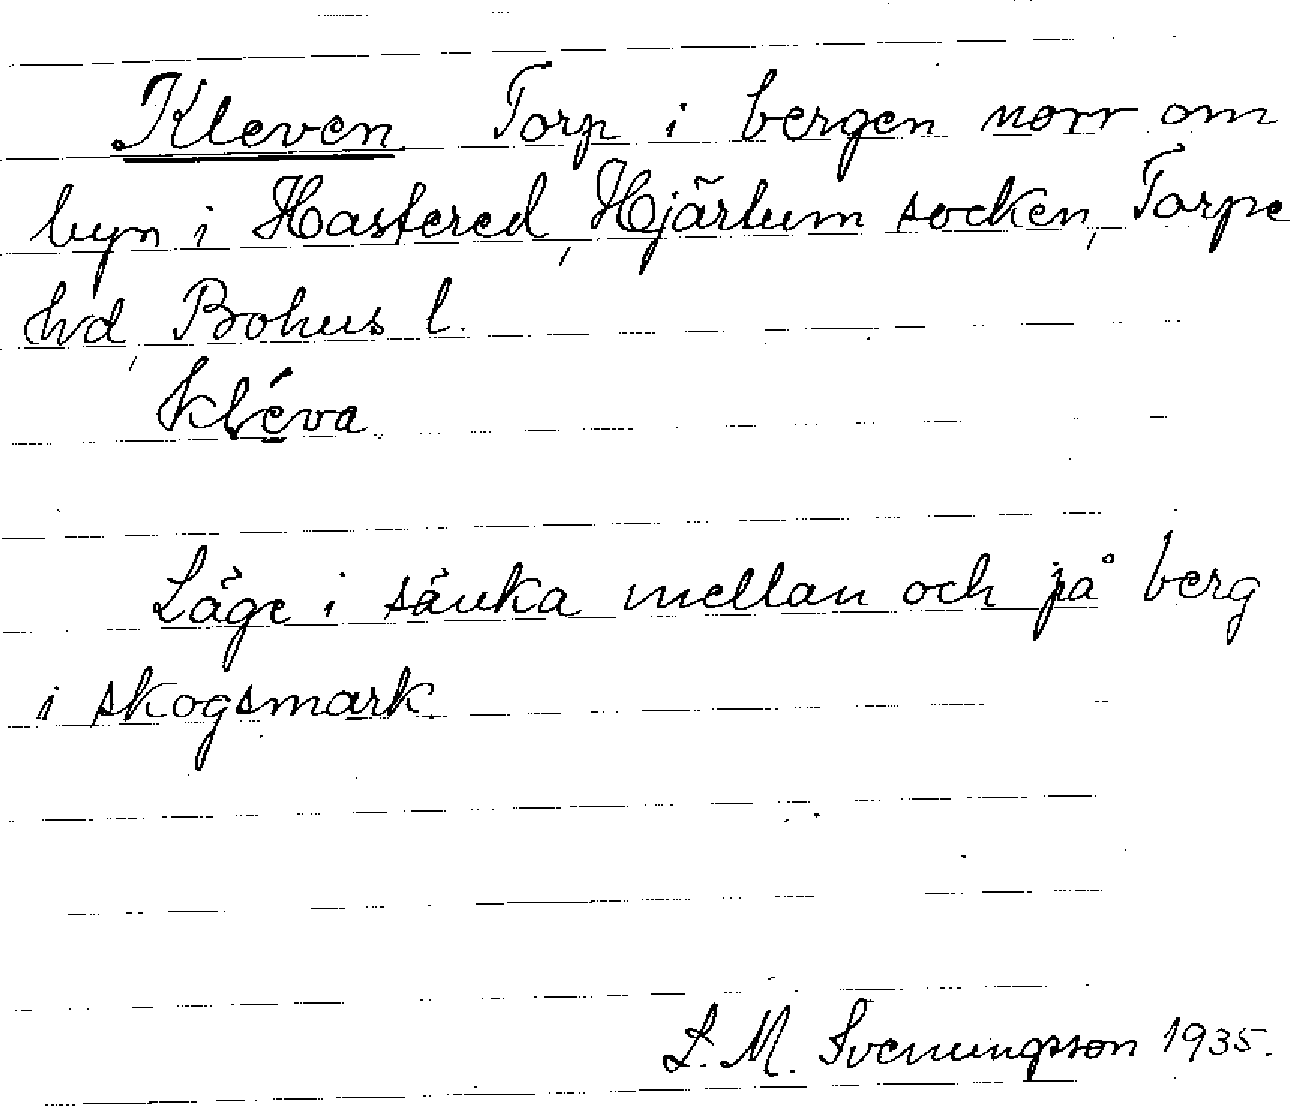 Kleven Torp i bergen norr om
byn i Hastered, Hjärtum socken, Torpe
hd, Bohus l.
kléva
Läge i sänka mellan och på berg
i skogsmark.
L. M. Svenungsson 1935.